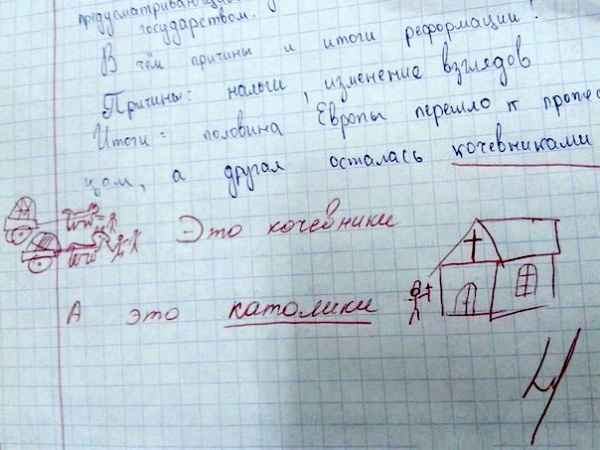 предусматривающий
государством.
В чём причины и итоги реформации?
Причины: налоги, изменение взглядов
Итоги: половина Европы перешло к протес
цам, а другая осталась кочевниками
Это кочевники
А это католики
4